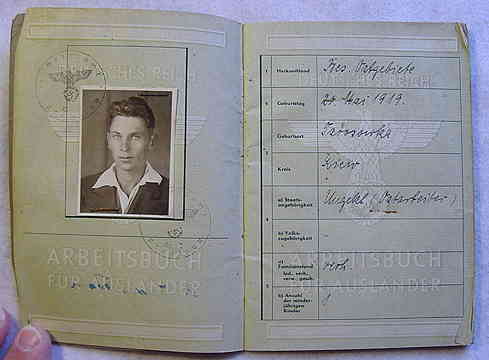 DEUTSCHES REICH
ARBEITSBUCH
FÜR AUSLÄNDER
1 Herkunftland bes. Ostgebiete
2 Geburtstag 20. Mai 1919.
Geburtsort
Kreis Kiew
a) Staats-
angehörigkeit Ungekl. (Ostarbeiter)
b) Volks-
zugehörigkeit -
Familienstand verh.
led., verh.,
verw., gesch.
b) Anzahl
der minder-
jährigen
Kinder
ARBEITSBUCH
FÜR AUSLÄNDER